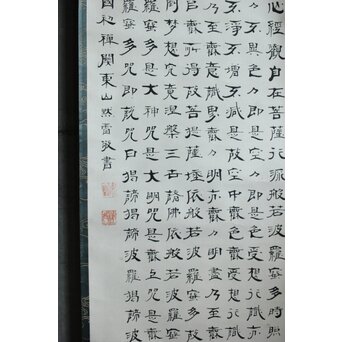 心經觀自在菩薩行深般若波羅蜜多時照
不異色々即是空々即是色受想行識亦
不淨不增不減是故空中無色無受想行識
至無意識界無々明亦無々明盡乃至無
故菩提薩埵依般若波羅蜜多
夢想究竟涅槃三世諸佛依般若波羅蜜
多是大神咒是大明咒是無上咒是無
羅蜜多咒即說咒曰揭諦揭諦波羅揭諦波羅
禪關東山默雷敬書